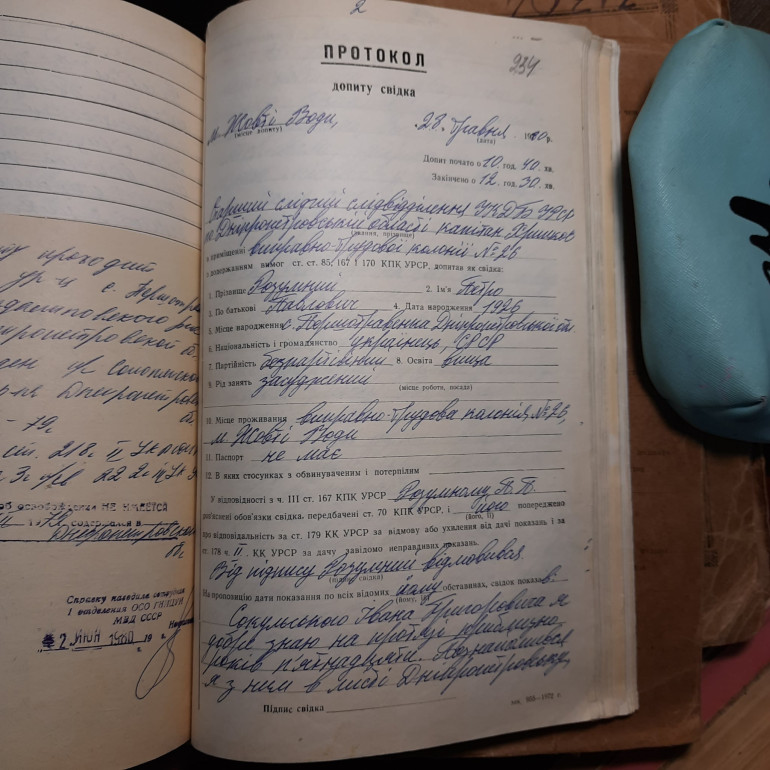 2
ПРОТОКОЛ
239
допиту свідка
м. Жовті Води,
(місце допиту)
23. травня 1980 р.
(дата)
Допит почато о 10 год. 40 хв.
Закінчено о 12 год. 30 хв.
Старший слідчий слідвідділення УКДБ УРСР
по Дніпропетровській області капітан
(звання, прізвище)
в приміщенні виправно-трудової колонії № 26
з додержанням вимог ст. ст. 85, 167 і 170 КПК УРСР, допитав як свідка:
1. Прізвище Розумний 2. Ім'я Петро
3. По батькові Павлович 4. Дата народження 1926
5. Місце народження с. Першотравенка Дніпропетровської обл.
6. Національність і громадянство українець, СРСР
7. Партійність безпартійний 8. Освіта вища
9. Рід занять засуджений
(місце роботи, посада)
10. Місце проживання виправно-трудова колонія, № 26,
м. Жовті Води
11. Паспорт не має
12. В яких стосунках з обвинуваченим і потерпілим
У відповідності з ч. III ст. 167 КПК УРСР Розумному П. П.
роз'яснені обов'язки свідка, передбачені ст. 70 КПК УРСР, і його попереджено
(його, її)
про відповідальність за ст. 179 КК УРСР за відмову або ухилення від дачі показань і за
ст. 178 ч. II КК УРСР за дачу завідомо неправдивих показань.
Від підпису Розумний відмовився.
(підпис свідка)
На пропозицію дати показання по всіх відомих йому обставинах, свідок показав:
(йому, їй)
Сокульського Івана Григоровича я
добре знаю на протязі приблизно
років п'ятнадцяти. Познайомився
я з ним в місті Дніпропетровську,
Підпис свідка
зам. 1972 г.
проходий
ур-ц с.
Днепропетровской
- 79г.
ст. 218 ч. II УК
ст. 222 ч. II УК
об освобождении НЕ ИМЕЕТСЯ
содержался в
Днепропетровской
Справку наводил сотрудник
I отделения ОСО ГУИДУИ
МВД СССР
2. ИЮН 1980 г.